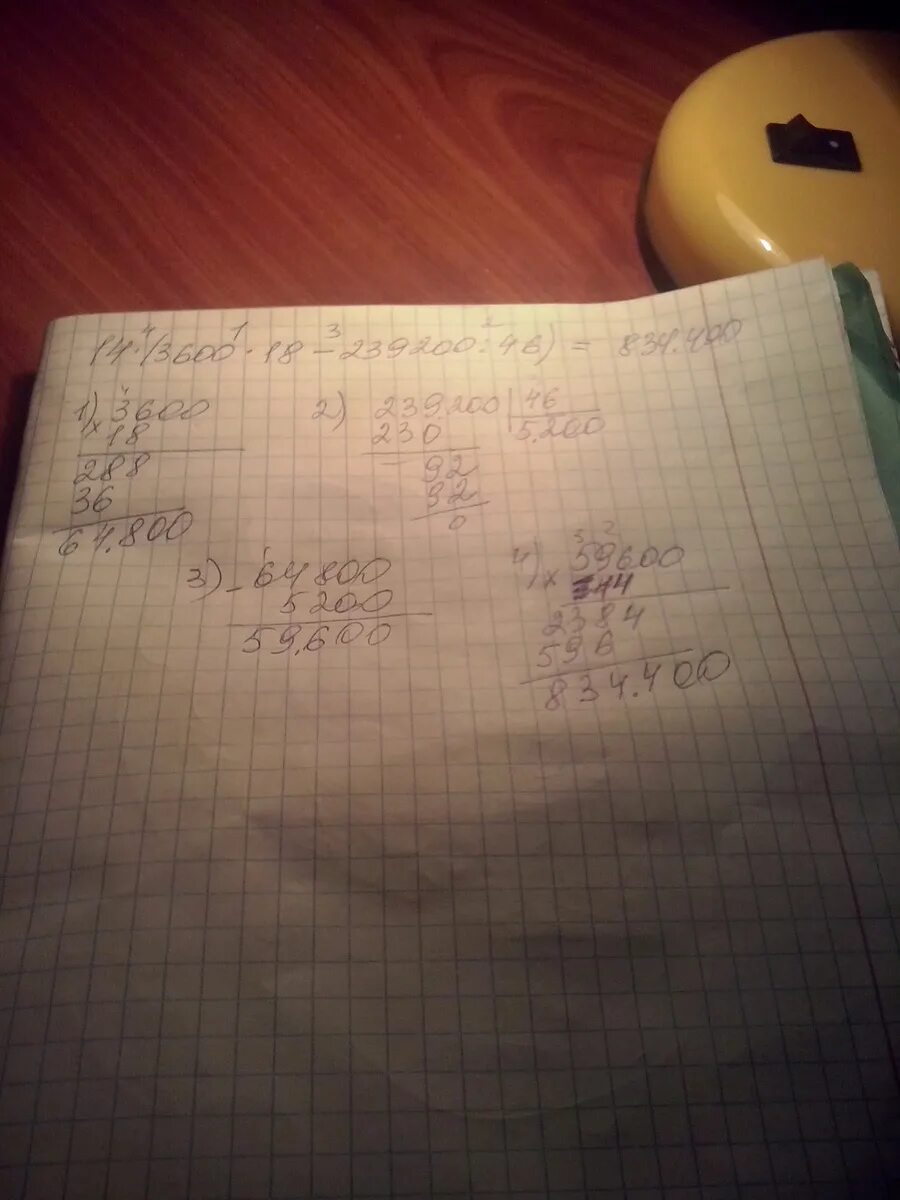 14·(3600·18-239200:46)=834.400
4 1 3 2
1) 3600
×18
288
36
64.800
2) 239.200 | 46
5.200
230
92
92
0
3) -64800
5200
59.600
4) × 59600
14
2384
596
834.400